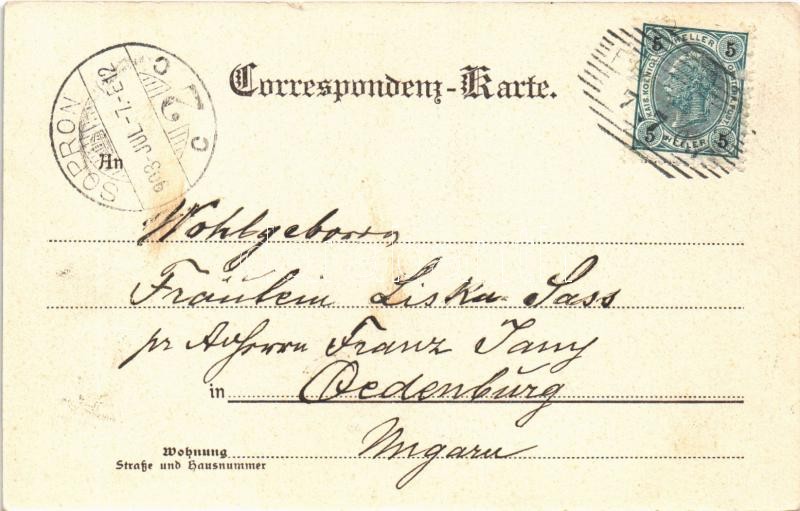 Correspondenz-Karte.
5 HELLER 5
5 HELLER 5
SOPRON
903 JUL. 7-E12
C 2 C
An
Wohlgeboren
Fräulein Liska Sass
pr Ad Herrn Franz Jany
in Oedenburg
Ungarn
Wohnung
Straße und Hausnummer